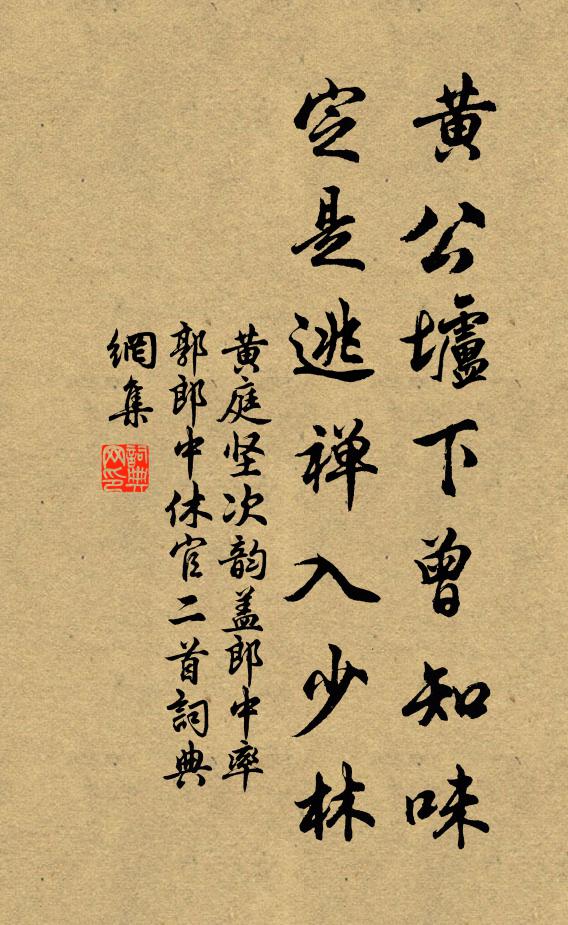 黄公壚下曾知味
定是逃禅入少林
黄庭坚次韵盖郎中率
郭郎中休官二首詞典
網集
詞典
网印